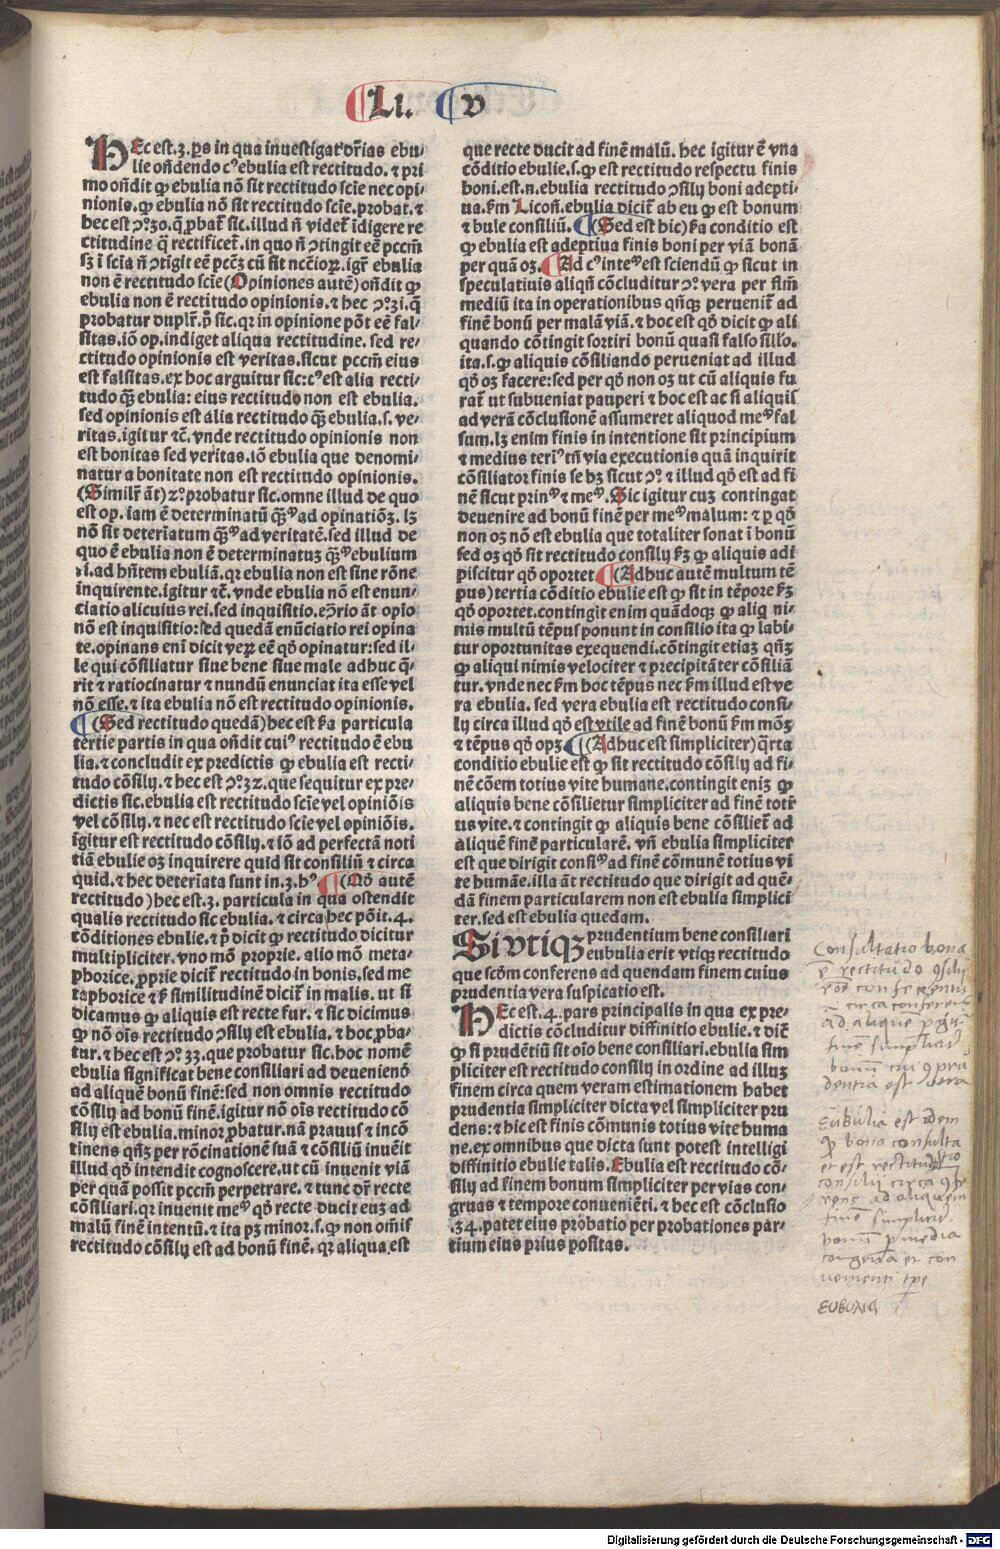 Li. V
HEc est.3. ꝑs in qua inuestigat dr̄ias ebu⸗
lie on̄dendo cꝰ ebulia est rectitudo. ⁊ pri
mo on̄dit ꝙ ebulia nō sit rectitudo scīe nec opi⸗
nionis. ꝙ ebulia nō sit rectitudo scīe. probat. ⁊
hec est ↄ̄.30. q̄ ꝓbat̄ sic. illud n̄ videt̄ īdigere re
ctitudine q̄ rectificet̄. in quo n̄ ↄtingit eē pccm̄
sꝫ ī scīa n̄ ↄtīgit eē pcc̄ꝫ cū sit nc̄cioꝝ. igr̄ ebulia
non ē rectitudo scīe (Opiniones autē) on̄dit ꝙ
ebulia non ē rectitudo opinionis. ⁊ hec ↄ̄.31. q̄
probatur duplr̄. p̄ sic. qꝛ in opinione pōt eē fal⸗
sitas. iō op. indiget aliqua rectitudine. sed re⸗
ctitudo opinionis est veritas. sicut pccm̄ eius
est falsitas. ex hoc arguitur sic: cꝰ est alia recti⸗
tudo qꝫ̄ ebulia: eius rectitudo non est ebulia.
sed opinionis est alia rectitudo qꝫ̄ ebulia. s. ve⸗
ritas. igitur ⁊c̄. vnde rectitudo opinionis non
est bonitas sed veritas. iō ebulia que denomi⸗
natur a bonitate non est rectitudo opinionis.
(Similr̄ āt) 2ꝰ. probatur sic. omne illud de quo
est op. iam ē determinatū qꝫ̄ꝰ ad opinatiōꝫ. lꝫ
nō sit deter̄iatum qꝫ̄ꝰ ad veritatē. sed illud de
quo ē ebulia non ē determinatuꝫ qꝫ̄ꝰ ebulium
.i. ad hn̄tem ebuliā. qꝛ ebulia non est sine rōne
inquirente. igitur ⁊c̄. vnde ebulia nō est enun⸗
ciatio alicuius rei. sed inquisitio. eↄ̄rio āt opīo
nō est inquisitio: sed quedā enūciatio rei opina
te. opinans enī dicit veꝝ eē qō opinatur: sed il⸗
le qui cōsiliatur siue bene siue male adhuc q̄⸗
rit ⁊ ratiocinatur ⁊ nundū enunciat ita esse vel
nō esse. ⁊ ita ebulia nō est rectitudo opinionis.
(Sed rectitudo quedā) hec est p̄a particula
tertie partis in qua on̄dit cuiꝰ rectitudo ē ebu
lia. ⁊ concludit ex predictis ꝙ ebulia est recti⸗
tudo cōsilij. ⁊ hec est ↄ̄.32. que sequitur ex pre⸗
dictis sic. ebulia est rectitudo scīe vel opiniōis
vel cōsilij. ⁊ nec est rectitudo scīe vel opiniōis.
igitur est rectitudo cōsilij. ⁊ iō ad perfectā noti
tiā ebulie oꝫ inquirere quid sit consiliū ⁊ circa
quid. ⁊ hec deter̄iata sunt in.3. hꝰ (Nō autē
rectitudo) hec est.3. particula in qua ostendit
qualis rectitudo sic ebulia. ⁊ circa hec pōit.4.
cōditiones ebulie. ⁊ p̄ dicit ꝙ rectitudo dicitur
multipliciter. vno mō proprie. alio mō meta⸗
phorice. ꝓprie dicit̄ rectitudo in bonis. sed me
taphorice ⁊ p̄ similitudinē dicit̄ in malis. ut si
dicamus ꝙ aliquis est recte fur. ⁊ sic dicimus
ꝙ nō oīs rectitudo ↄsilij est ebulia. ⁊ hoc ꝓba⸗
tur. ⁊ hec est ↄ̄.33. que probatur sic. hoc nomē
ebulia significat bene consiliari ad deueniēdō
ad aliquē bonū finē: sed non omnis rectitudo
cōsilij ad bonū finē. igitur nō oīs rectitudo cō
silij est ebulia. minor ꝓbatur. nā prauus ⁊ incō
tinens qn̄ꝫ per rōcinationē suā ⁊ cōsiliū inuēit
illud qō intendit cognoscere. ut cū inuenit viā
per quam possit pccm̄ perpetrare. ⁊ tunc dr̄ recte
cōsiliari. qꝛ inuenit meꝰ qō recte ducit euꝫ ad
malū finē intentū. ⁊ ita pꝫ minor. s. ꝙ non oml̄s
rectitudo cōsilij est ad bonū finē. qꝛ aliqua est
que recte ducit ad finē malū. hec igitur ē vna
cōditio ebulie. s. ꝙ est rectitudo respectu finis
boni. est.n. ebulia rectitudo ↄsilij boni adepti⸗
ua. ẜm Licon̄. ebulia dicit̄ ab eu ꝙ est bonum
⁊ bule consiliū. (Sed est hic) ẜa conditio est
ꝙ ebulia est adeptiua finis boni per viā bonā
per quā oꝫ. Ad cꝰ inteᵐ est sciendū ꝙ sicut in
speculatiuis aliqn̄ cōcluditur ↄ̄ vera per flm̄
mediū ita in operationibus qn̄qꝫ peruenit̄ ad
finē bonū per malā viā. ⁊ hoc est qō dicit ꝙ ali
quando cōtingit sortiri bonū quasi falso sillo.
ita. s. ꝙ aliquis cōsiliando perueniat ad illud
qō oꝫ facere: sed per qō non oꝫ ut cū aliquis fu
rat̄ ut subueniat pauperi ⁊ hoc est ac si aliquis
ad verā cōclusionē assumeret aliquod meᵐ fal
sum. lꝫ enim finis in intentione sit principium
⁊ medius teriꝰ tn̄ via executionis quā inquirit
cōsiliator finis se hꝫ sicut ↄ̄ ⁊ illud qō est ad fi
nē sicut prinᵐ ⁊ meᵐ. Sic igitur cuꝫ contingat
deuenire ad bonū finē per meᵐ malum: ⁊ ꝑ qō
non oꝫ nō est ebulia que totaliter sonat ī bonū
sed oꝫ qō sit rectitudo consilij ẜꝫ ꝙ aliquis adi
piscitur qō oportet (Adhuc autē multum tē
pus) tertia cōditio ebulie est ꝙ sit in tēpore ẜꝫ
qō oportet. contingit enim quādoqꝫ ꝙ aliq ni⸗
mis multū tēpus ponunt in consilio ita ꝙ labi⸗
tur oportunitas exequendi. cōtingit etiaꝫ qn̄ꝫ
ꝙ aliqui nimis velociter ⁊ precipitāter cōsiliā
tur. vnde nec ẜm hoc tēpus nec ẜm illud est ve
ra ebulia. sed vera ebulia est rectitudo consi⸗
lij circa illud qō est vtile ad finē bonū ẜm mōꝫ
⁊ tēpus qō opꝫ (Adhuc est simpliciter) q̄rta
conditio ebulie est ꝙ sit rectitudo cōsilij ad fi⸗
nē cōem totius vite humane. contingit eniꝫ ꝙ
aliquis bene cōsilietur simpliciter ad finē totiꝰ
us vite. ⁊ contingit ꝙ aliquis bene cōsiliet̄ ad
aliquē finē particularē. vn̄ ebulia simpliciter
est que dirigit consiᵐ ad finē cōmunē totius vi
te humāe. illa āt rectitudo que dirigit ad quē⸗
dā finem particularem non est ebulia simplici
ter. sed est ebulia quedam.
Si vtiqꝫ prudentium bene consiliari
eubulia erit vtiqꝫ rectitudo
que scōm conferens ad quendam finem cuius
prudentia vera suspicatio est.
HEc est.4. pars principalis in qua ex pre⸗
dictis cōcluditur diffinitio ebulie. ⁊ dic̄
ꝙ si prudētiū sit oīo bene consiliari. ebulia sim
pliciter est rectitudo consilij in ordine ad illuꝫ
finem circa quem veram estimationem habet
prudentia simpliciter dicta vel simpliciter pru
dens: ⁊ hic est finis cōmunis totius vite huma
ne. ex omnibus que dicta sunt potest intelligi
diffinitio ebulie talis. Ebulia est rectitudo cō⸗
silij ad finem bonum simpliciter per vias con⸗
gruas ⁊ tempore conueniēti. ⁊ hec est cōclusio
.34. patet eius probatio per probationes par⸗
tium eius prius positas.
Consultatio bona
ē rectitudo ↄsilii
circa conferens
ad aliquē
finē simplicit̄
bonū cui ꝰ pru
dentia est vera
Eubulia est idem
ꝙ bona consulta
tio
et est rectitudo
consilii circa ↄfe
rens ad aliquem
finē simplicit̄
bonū ꝑ media
congrua et con
uenienti tp̄e